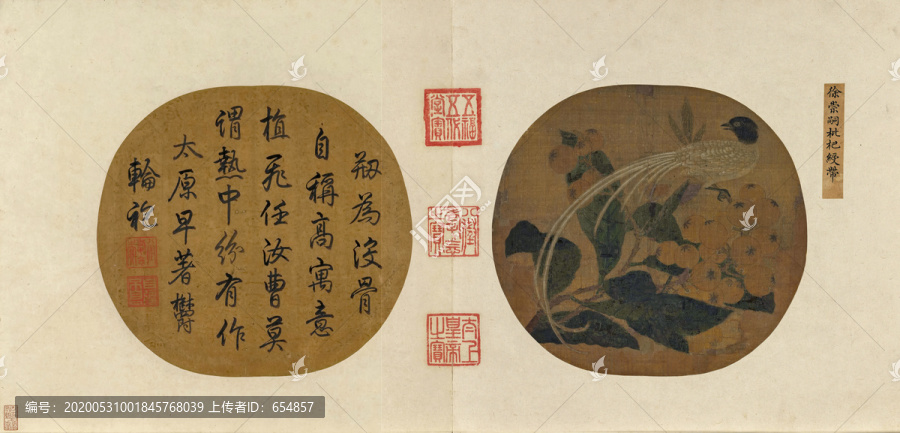 徐崇嗣枇杷綬帶
五福五代堂寶
八徵耄念之寶
太上皇帝之寶
剏為没骨
自稱高寓意
植飛任汝曹莫
謂熱中紛有作
太原早著鬱
輪袍
编号:20200531001845768039 上传者ID:654857